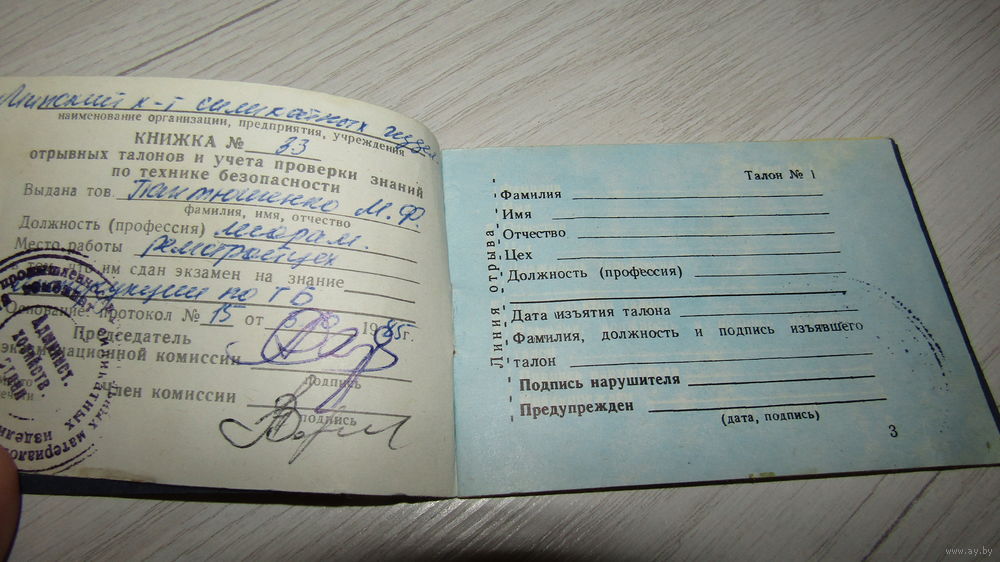 Минский к-т силикатных издел.
наименование организации, предприятия, учреждения
КНИЖКА № 33
отрывных талонов и учета проверки знаний
по технике безопасности
Выдана тов. Пантюшенко М.Ф.
фамилия, имя, отчество
Должность (профессия)
Место работы
им сдан экзамен на знание
по ТБ
Основание: протокол № 15 от 1985г.
Председатель
экзаменационной комиссии
подпись
член комиссии
подпись
Админист.
хозяйств.
отдел
Линия отрыва
Талон № 1
Фамилия
Имя
Отчество
Цех
Должность (профессия)
Дата изъятия талона
Фамилия, должность и подпись изъявшего
талон
Подпись нарушителя
Предупрежден
(дата, подпись)
3
www.ay.by